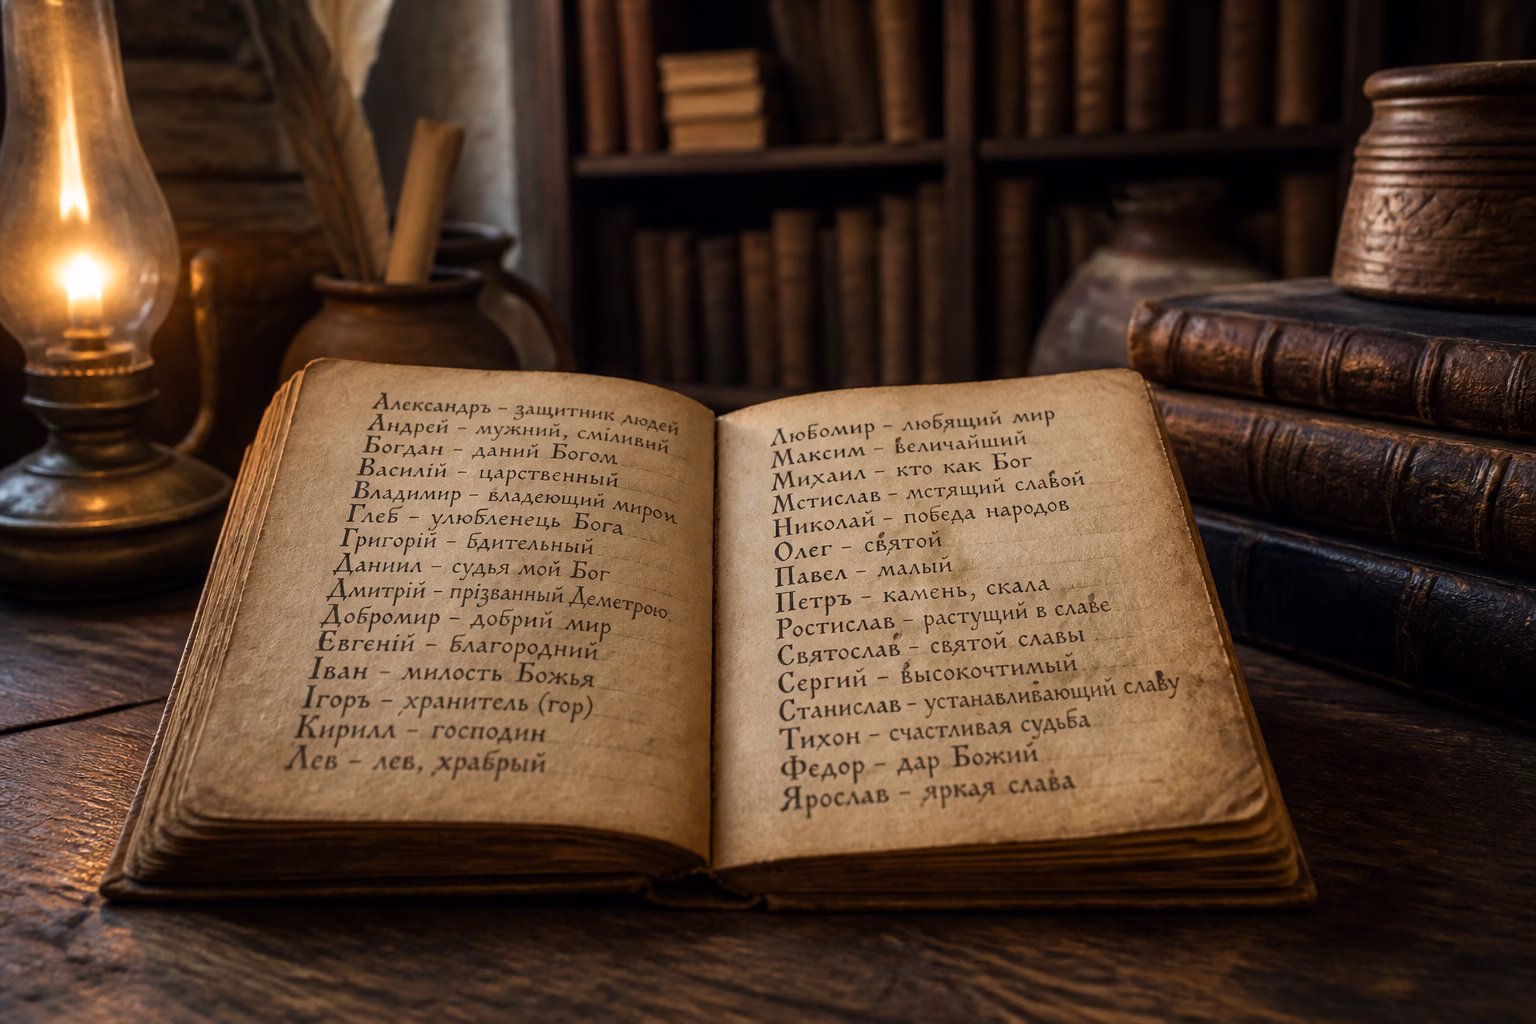 Александръ – защитник людей
Андрей – мужний, сміливий
Богдан – даний Богом
Василій – царственный
Владимир – владеющий миром
Глеб – улюбленець Бога
Григорій – бдительный
Даниил – судья мой Бог
Дмитрій – прізванный Деметрою
Добромир – добрий мир
Евгеній – благородний
Іван – милость Божья
Ігоръ – хранитель (гор)
Кирилл – господин
Лев – лев, храбрый
Любомир – любящий мир
Максим – величайший
Михаил – кто как Бог
Мстислав – мстящий славой
Николай – победа народов
Олег – святой
Павел – малый
Петръ – камень, скала
Ростислав – растущий в славе
Святослав – святой славы
Сергий – высокочтимый
Станислав – устанавливающий славу
Тихон – счастливая судьба
Федор – дар Божий
Ярослав – яркая слава